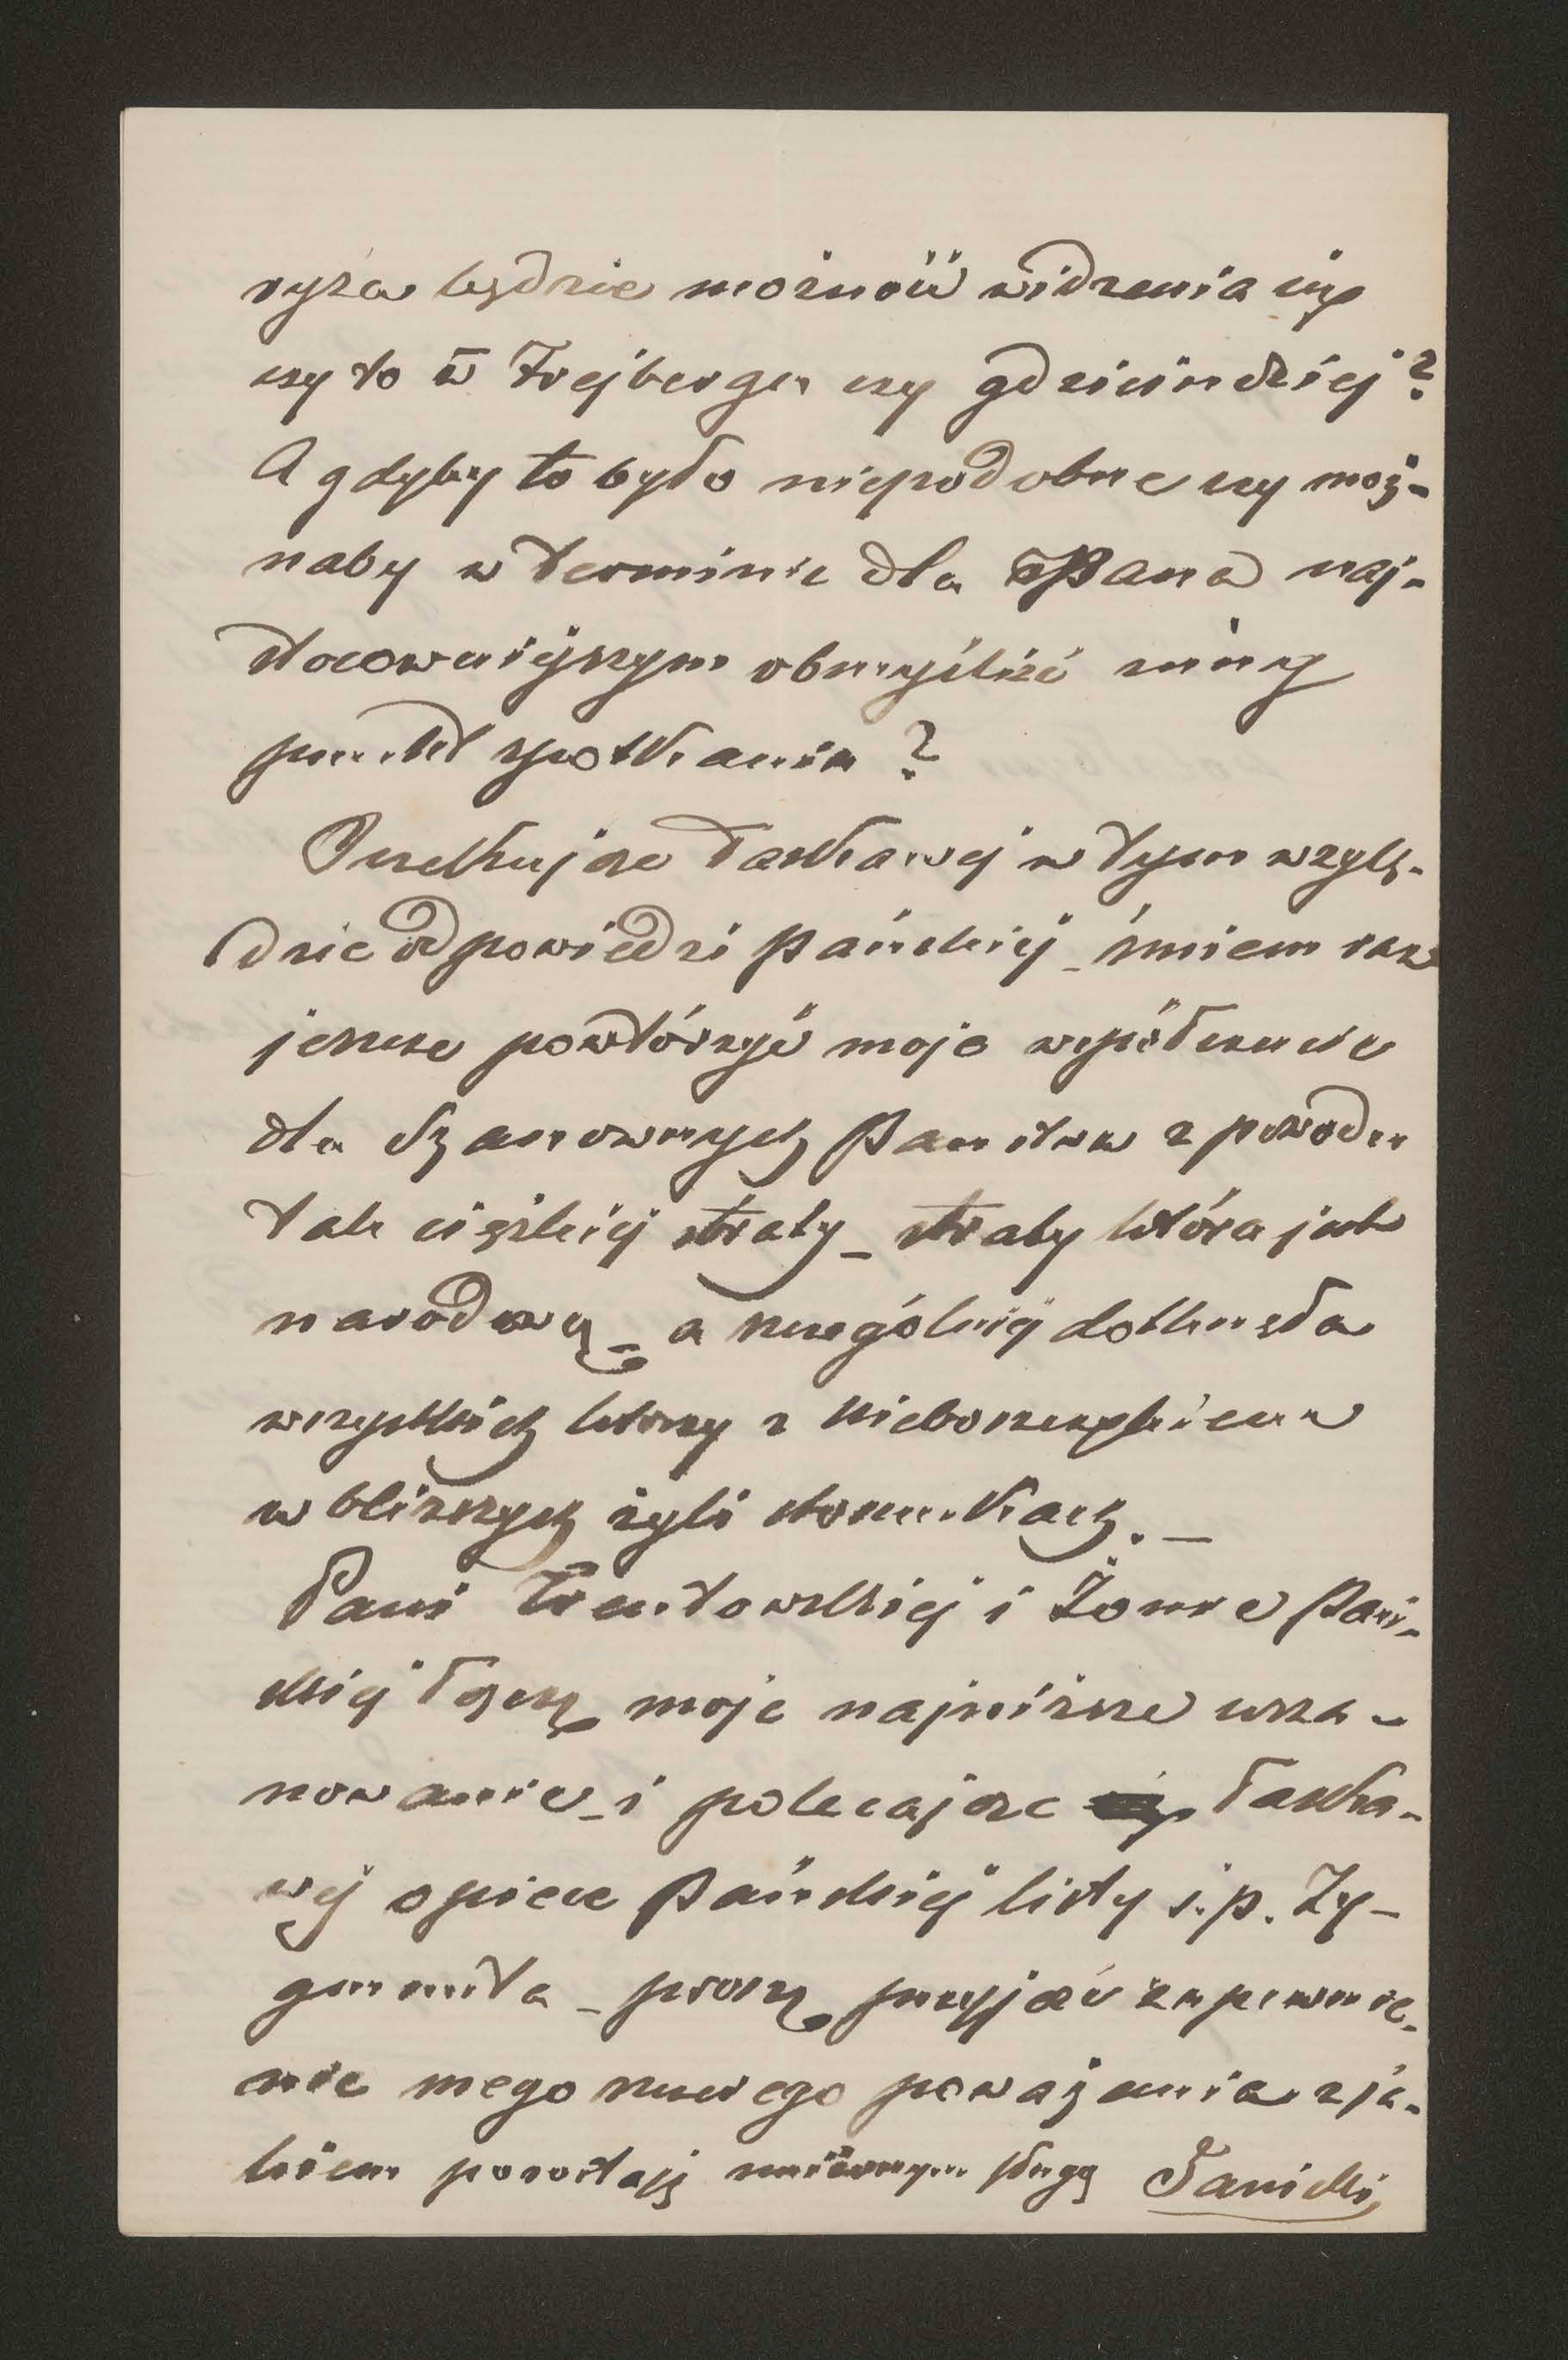 ryża będzie możność widzenia się
czy to w Frejbergu czy gdzieindziej?
A gdyby to było niepodobne czy moż-
naby w terminie dla Pana naj-
stosowniejszym obmyślić inny
punkt spotkania?
Oczekując łaskawej w tym wzglę-
dzie odpowiedzi Pańskiej _ śmiem raz
jeszcze powtórzyć moje współczucie
dla Szanownych Państwa z powodu
tak ciężkiej straty _ straty która jak
narodową _ a szczególniej dotknęła
wszystkich którzy z nieboszczykiem
w bliższych żyli stosunkach. _
Pani Trentowskiej i Żonie Pań-
skiej łączę moje najniższe usza-
nowanie _ i polecając łaska-
wej opiece Pańskiej listy ś. p. Zy-
gmunta _ proszę przyjąć zapewnie-
nie mego szczerego poważania z ja-
kiem pozostaję uniżonym sługą